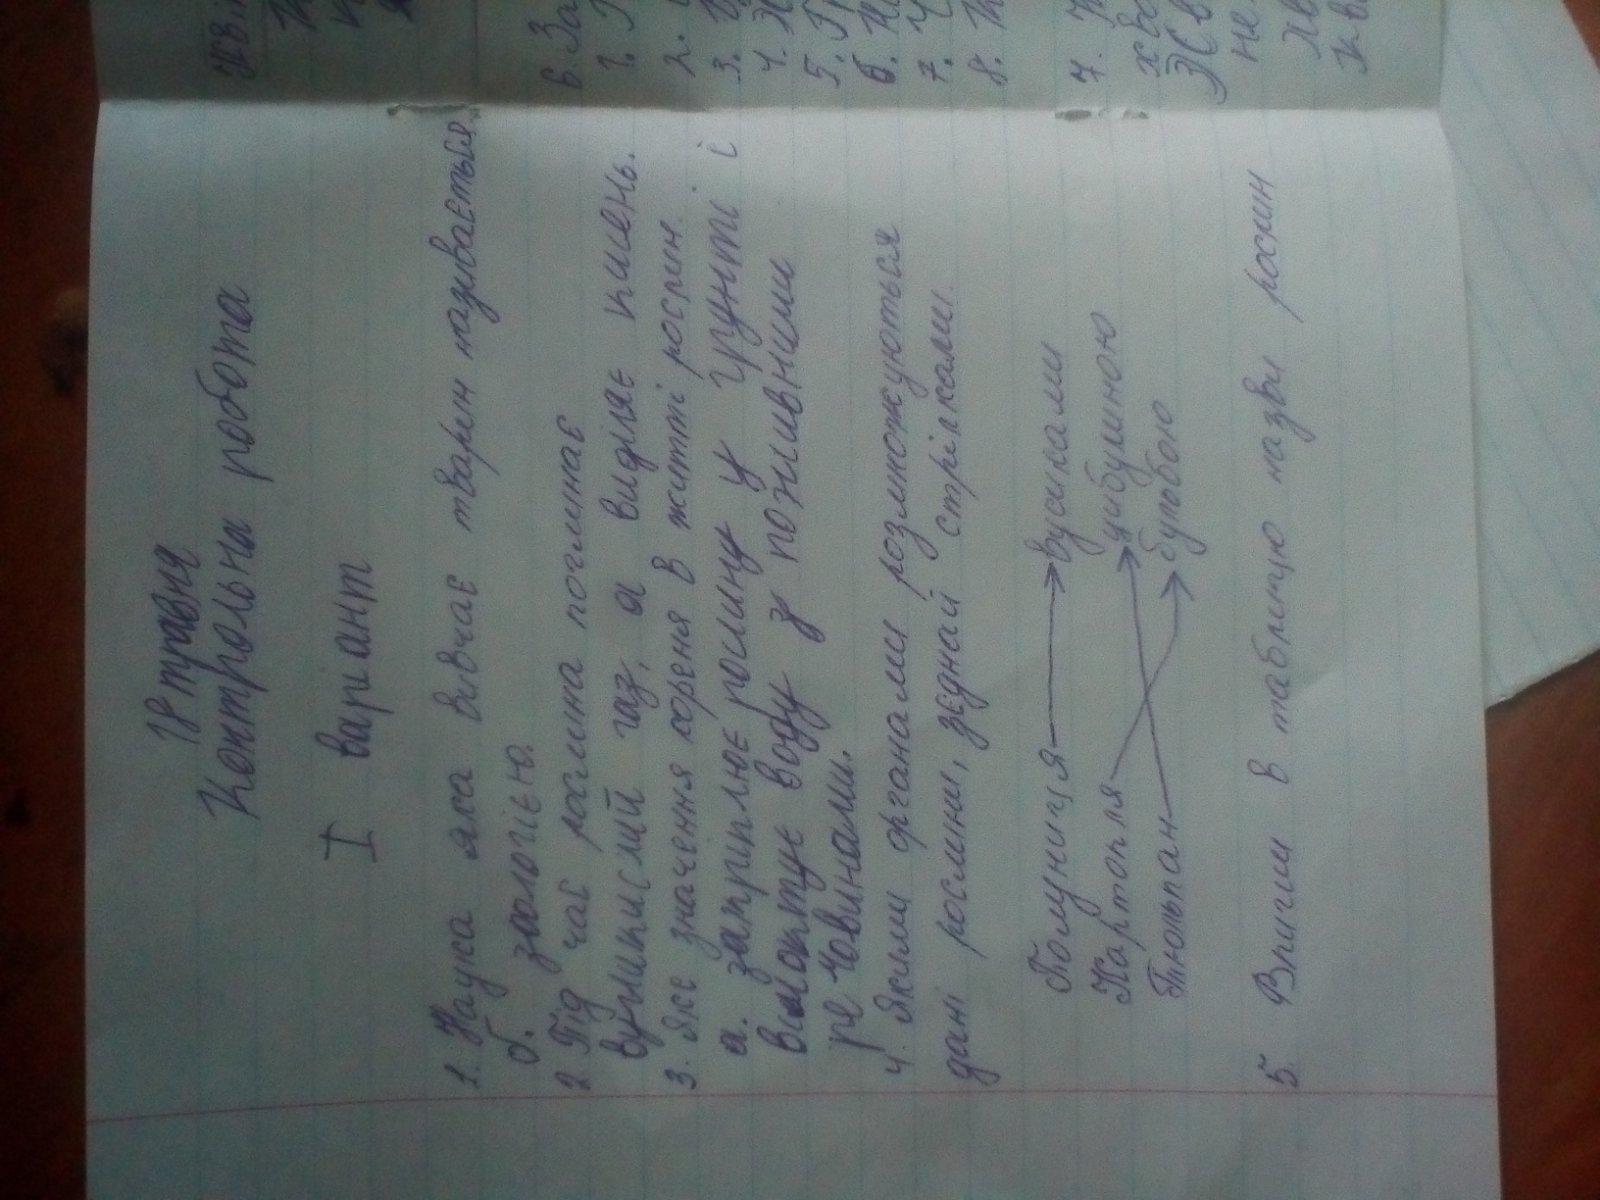 18 травня
Контрольна робота
І варіант
1. Наука яка вивчає тварин називається
б. зоологією.
2 Під час росмина поглинає
вуглкислий газ, а виділяє кисень.
3. Яке значення кореня в житті рослин.
а. закріплює рослину у грунті і
всмоктує воду з поживними
речовинами.
4. Якими органами розмножуються
дані рослини, зєднай стрілками.
Полуниця вусиками
Картопля цибулиною
Тюльпан бульбою
5. Впиши в таблицю назви рослин
6 За
1. Г
2.
3.
4. Ж
5. Гр
6.
7. Ч
8.
7.